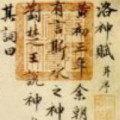 洛神賦 并序
黃初三年余朝
有言斯水之神
對楚王說神
其詞曰